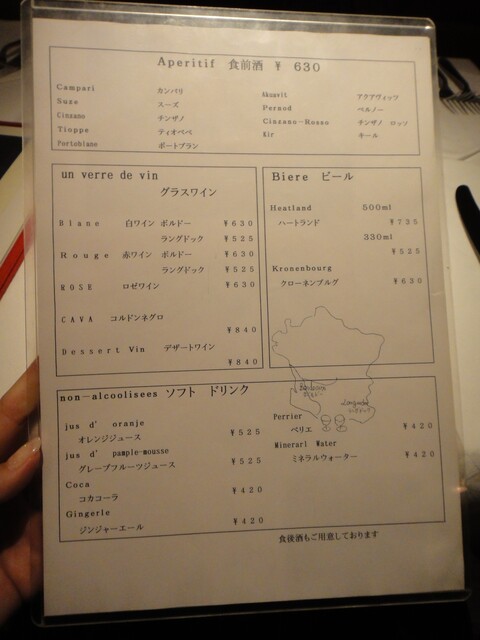 Aperitif 食前酒 ¥ 630
Campari カンパリ
Suze スーズ
Cinzano チンザノ
Tioppe ティオペペ
Portoblane ポートブラン
Akuavit アクアヴィッツ
Pernod ペルノー
Cinzano-Rosso チンザノ ロッソ
Kir キール
un verre de vin
グラスワイン
Blanc 白ワイン ボルドー ¥630
ラングドック ¥525
Rouge 赤ワイン ボルドー ¥630
ラングドック ¥525
ROSE ロゼワイン ¥630
CAVA コルドンネグロ
¥840
Dessert Vin デザートワイン
¥840
Biere ビール
Heatland 500ml
ハートランド ¥735
330ml
¥525
Kronenbourg
クローネンブルグ ¥630
non-alcoolisees ソフト ドリンク
jus d' oranje
オレンジジュース ¥525
jus d' pample-mousse
グレープフルーツジュース ¥525
Coca
コカコーラ ¥420
Gingerle
ジンジャーエール ¥420
Perrier
ペリエ ¥420
Minerarl Water
ミネラルウォーター ¥420
食後酒もご用意しております